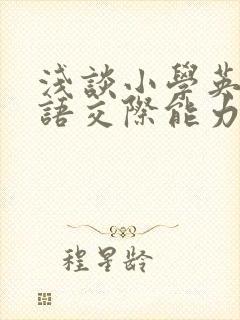 浅談小學英
語交際能力
程星齡